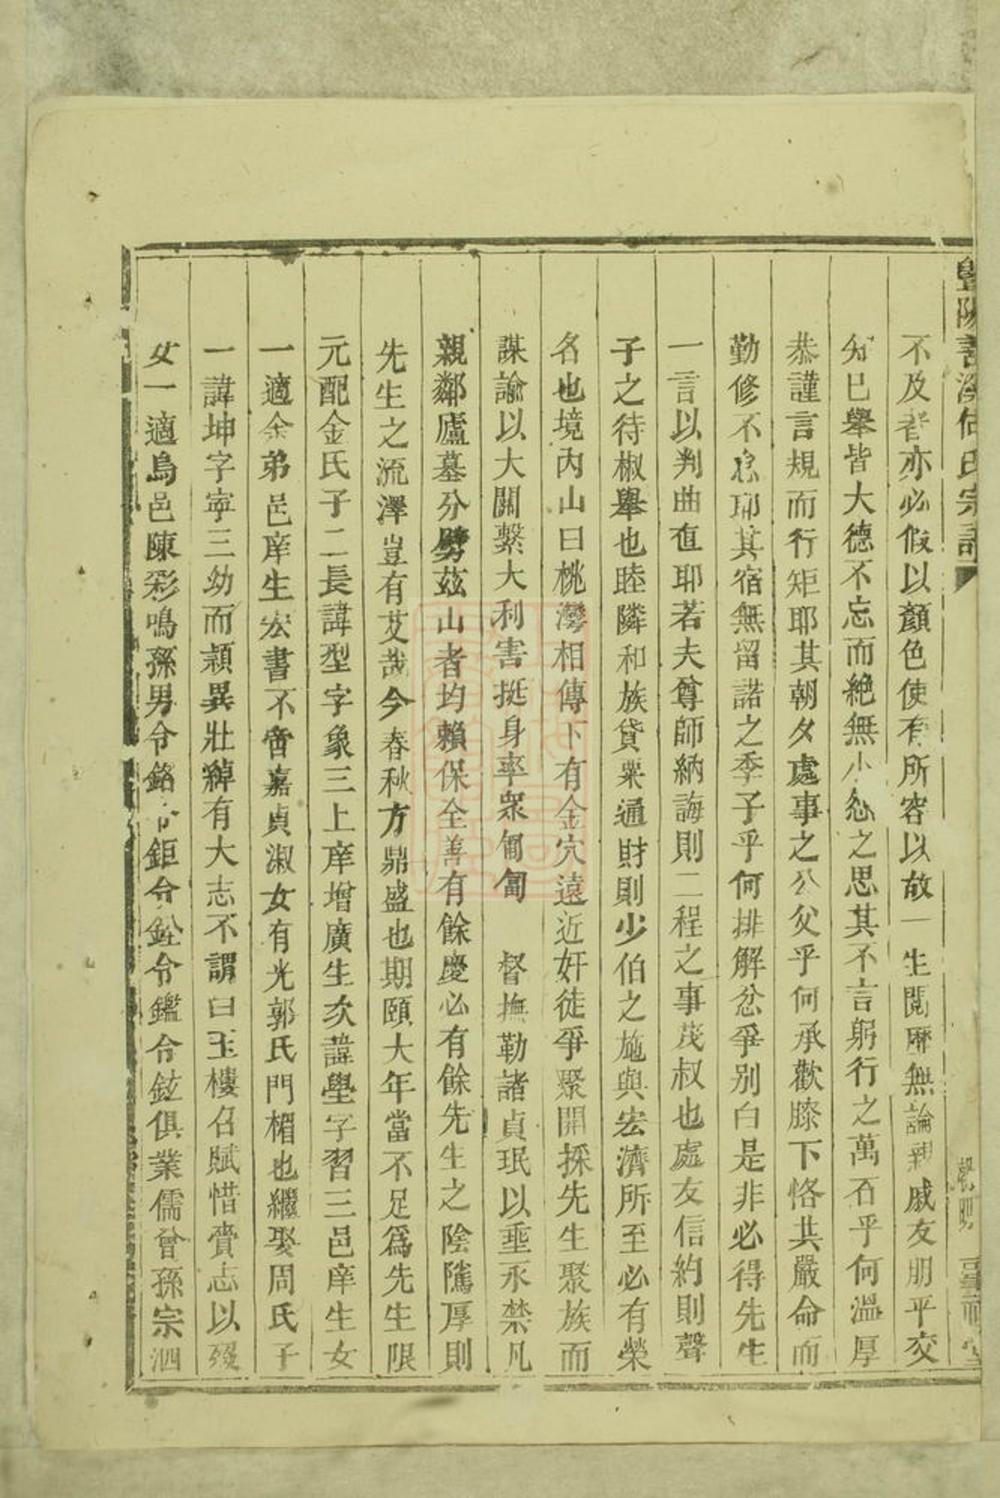 暨陽善溪何氏宗譜
不及者亦必假以顏色使有所容以故一生閱歷無論親戚友朋平交
知已舉皆大德不忘而絶無小忿之思其不言躬行之萬石乎何溫厚
恭謹言規而行矩耶其朝夕處事之公父乎何承歡膝下恪共嚴命而
勤修不怠耶其宿無留諾之季子乎何排解忿爭別白是非必得先生
一言以判曲直耶若夫尊師納誨則二程之事茂叔也處友信約則聲
子之待椒舉也睦隣和族貸粟通財則少伯之施與宏濟所至必有榮
名也境內山曰桃灣相傳下有金穴遠近奸徒爭聚開採先生聚族而
謀諭以大關繫大利害挺身率衆匍匐　督撫勒諸貞珉以垂永禁凡
親鄰廬墓分劈茲山者均賴保全善有餘慶必有餘先生之陰隲厚則
先生之流澤豈有艾哉今春秋方鼎盛也期頤大年當不足爲先生限
元配金氏子二長諱型字象三上庠增廣生次諱學字習三邑庠生女
一適余弟邑庠生宏書不啻嘉貞淑女有光郭氏門楣也繼娶周氏子
一諱坤字寜三幼而穎異壯綽有大志不謂曰玉樓召賦惜賫志以歿
女一適烏邑陳彩鳴孫男令銘令鉅令銓令鑑令鉉俱業儒曾孫宗泗